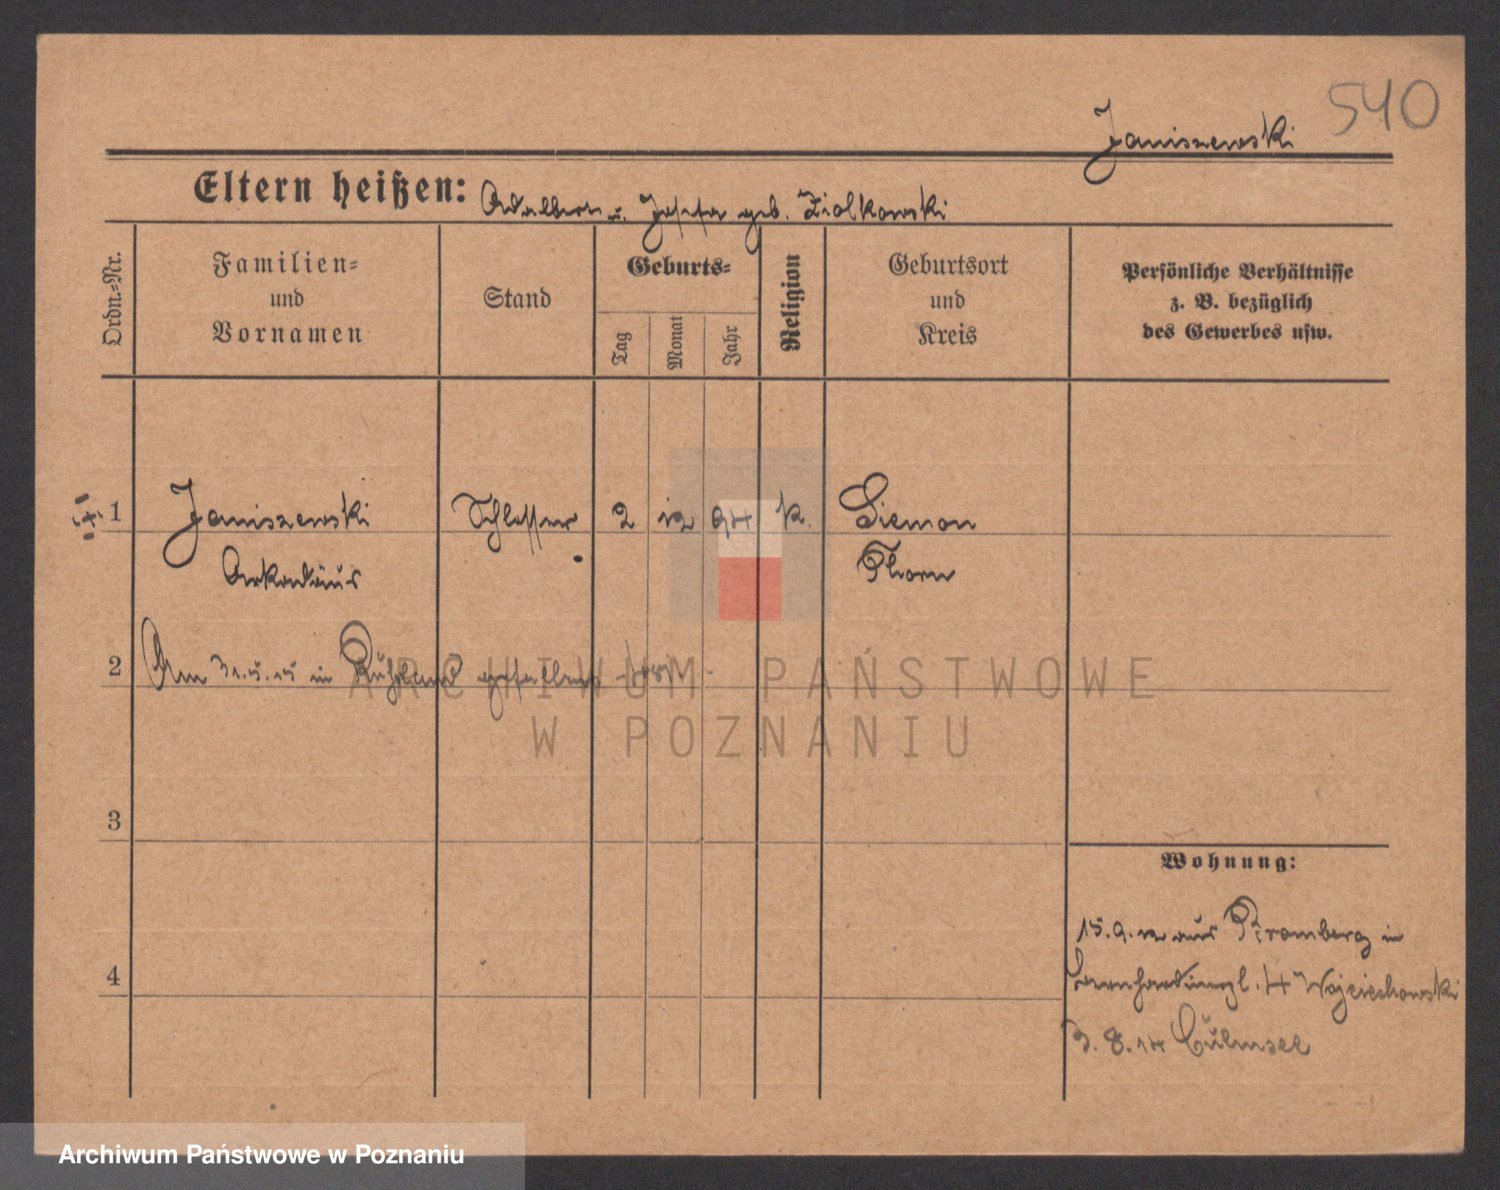 540
Janiszewski
Eltern heißen: Adalbert u. Josefa geb. Ziolkowski
Ordn.=Nr.
Familien=
und
Vornamen
Stand
Geburts=
Tag
Monat
Jahr
Religion
Geburtsort
und
Kreis
Persönliche Verhältnisse
z. B. bezüglich
des Gewerbes usw.
1 Janiszewski Schlosser 2 12 94 k. Siemon
Arkadius Thorn
2 Am 31.5.15 in Rußland gefallen
3
4
Wohnung:
15.9.12 aus Bromberg in
Bernhardinerpl. 4 Wojciechowski
3.8.14 Culmsee
ARCHIWUM PAŃSTWOWE
W POZNANIU
Archiwum Państwowe w Poznaniu